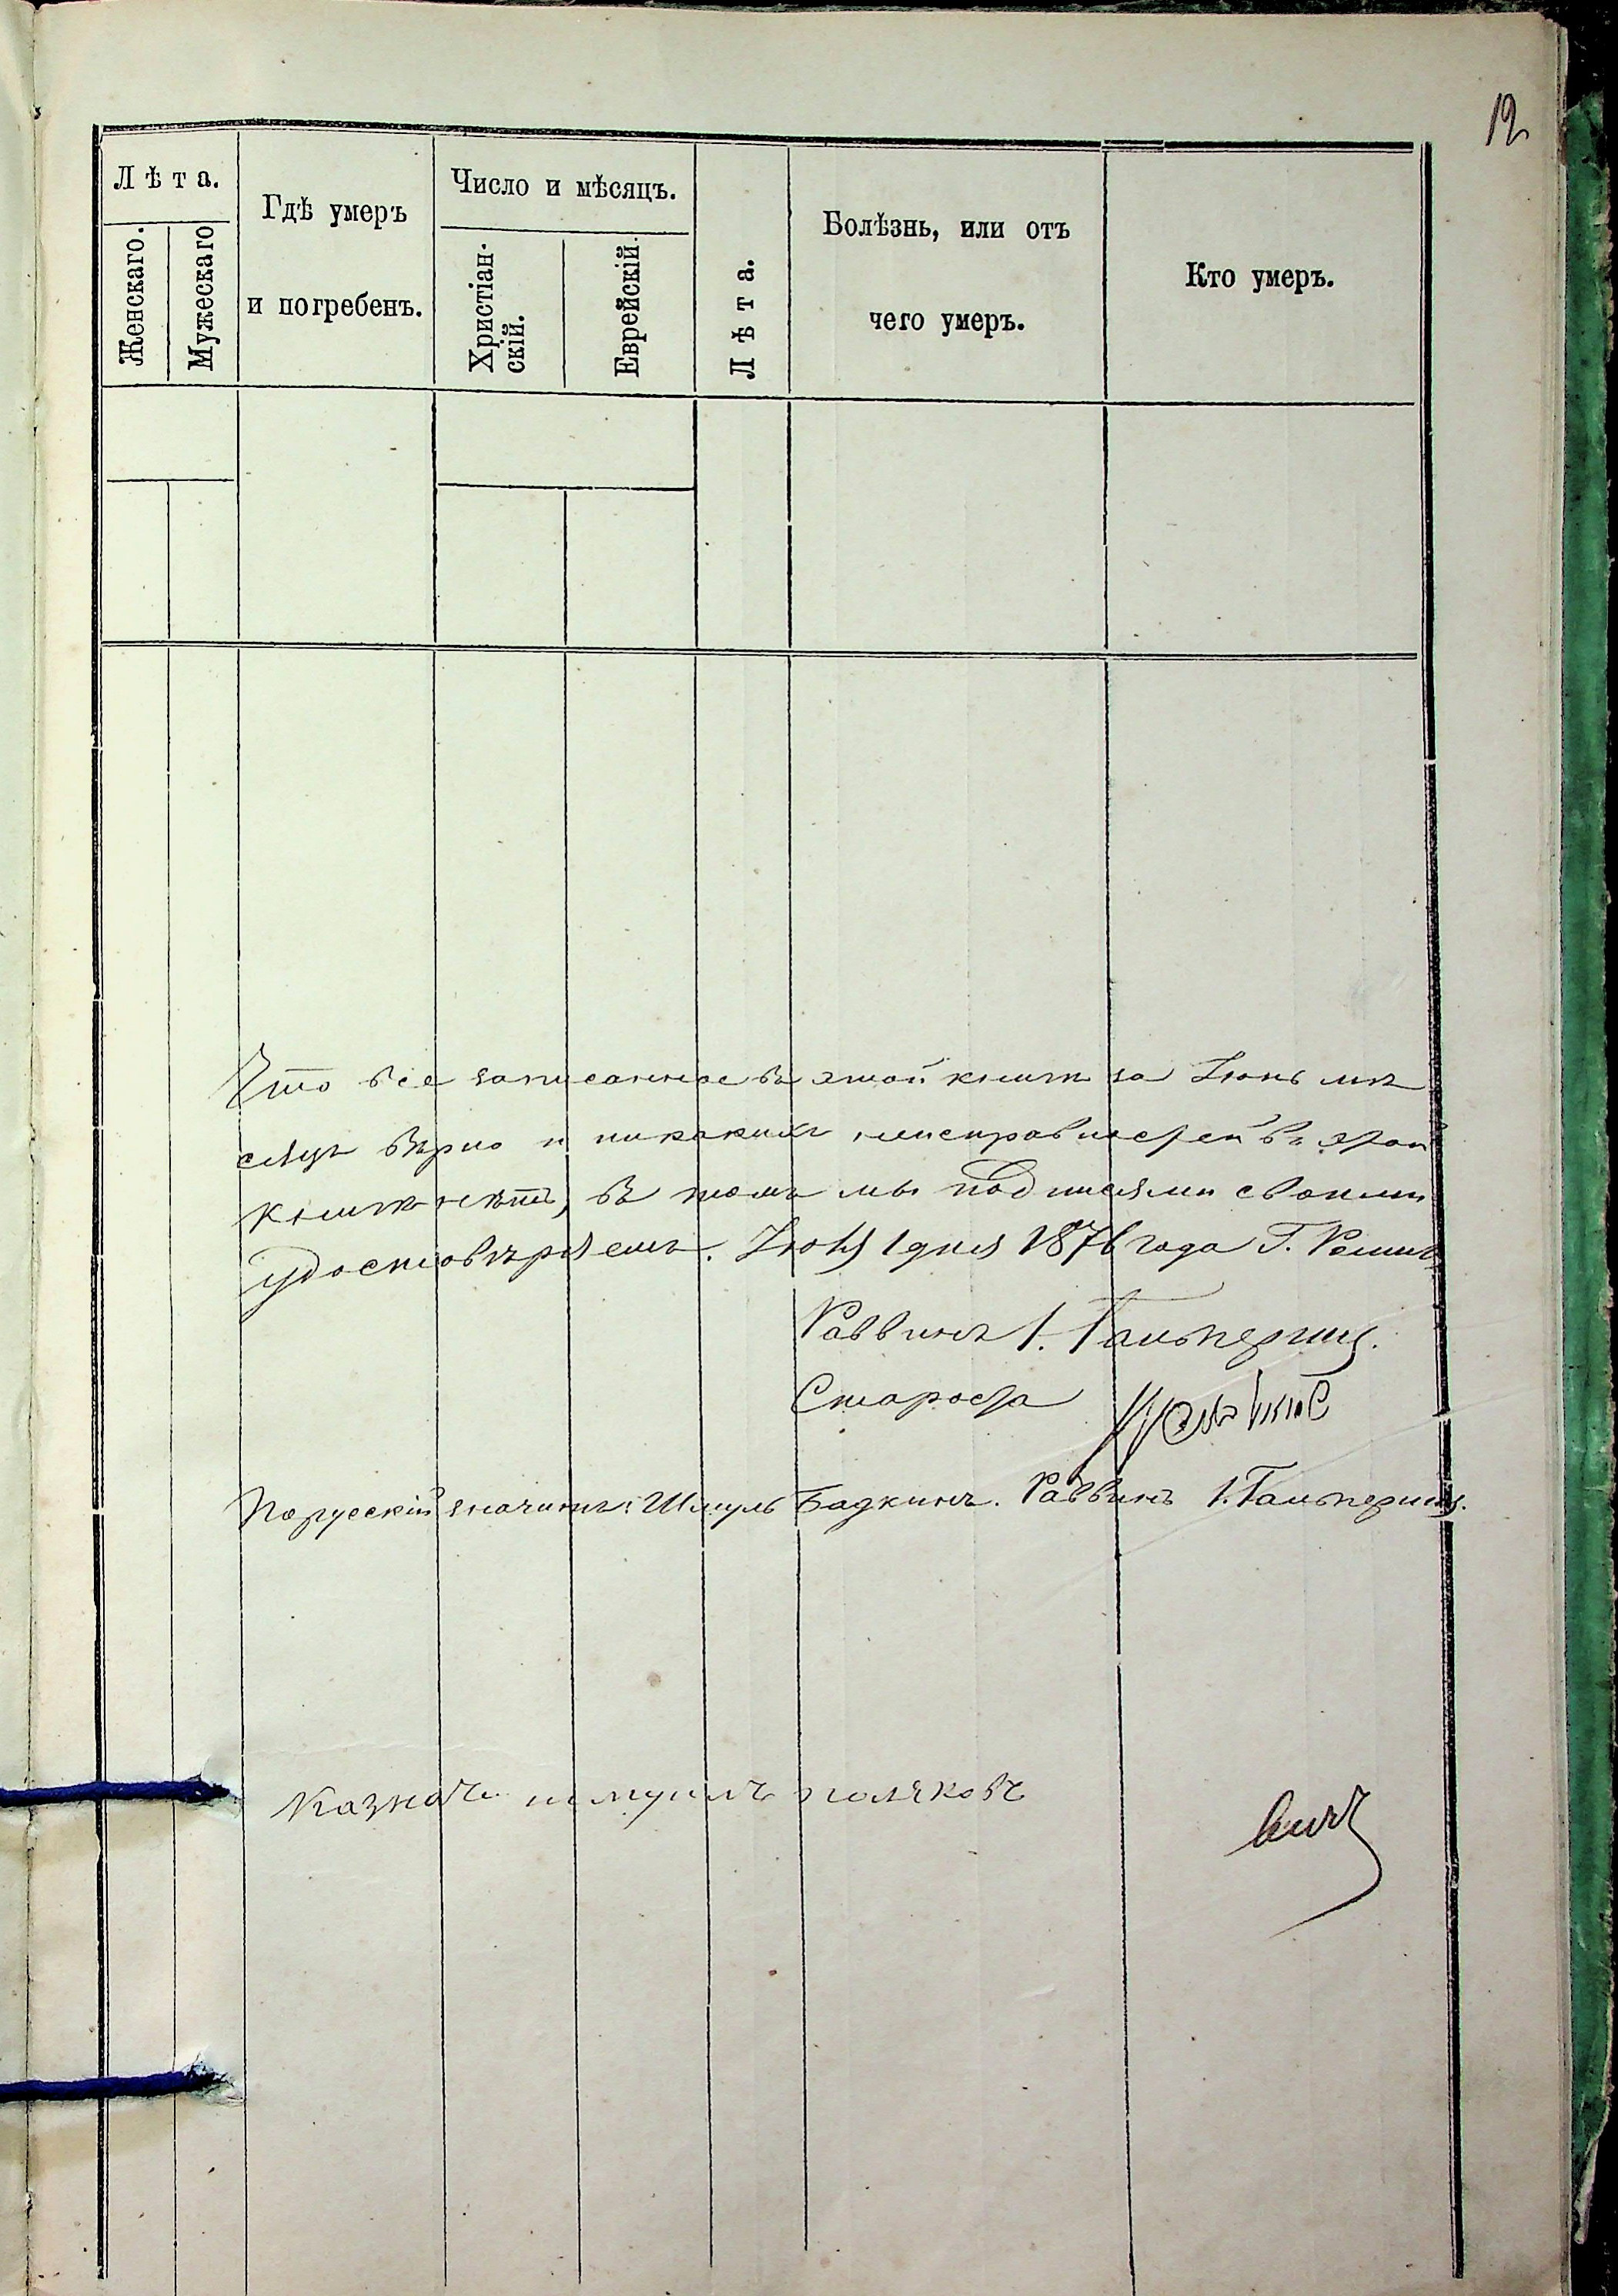 12
Лѣта.
Женскаго.
Мужескаго
Гдѣ умеръ
и погребенъ.
Число и мѣсяцъ.
Христіан-
скій.
Еврейскій.
Лѣта.
Болѣзнь, или отъ
чего умеръ.
Кто умеръ.
Что все записанное въ этой книгѣ за Іюнь мѣ
сяцъ вѣрно и никакихъ неисправностей въ этой
книгѣ нѣтъ, въ томъ мы подписями своими
удостовѣряемъ. Іюля 1 дня 1876 года Г.
Раввинъ І. Гальперинъ.
Староста
По русскій значитъ: Шмуль Бадкинъ. Раввинъ І. Гальперинъ.
Казначе шмуилъ поляковъ